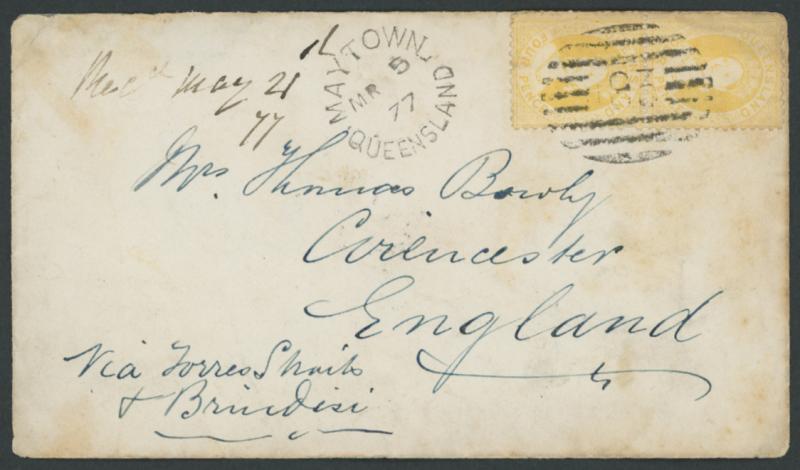 Rec'd May 21
77
MAYTOWN
MR 5
77
QUEENSLAND
FOUR PENCE
QUEENSLAND
Mrs. Thomas Bowly
Cirencester
England
Via Torres Straits
& Brindisi